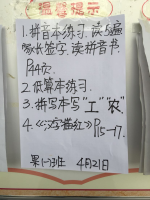 温馨提示
1.拼音本练习.读5遍
家长签字,读拼音书
P44页.
2.低算本练习.
3.拼写本写"工""农".
4.《汉字描红》P15-17.
累1-3班 4月21日